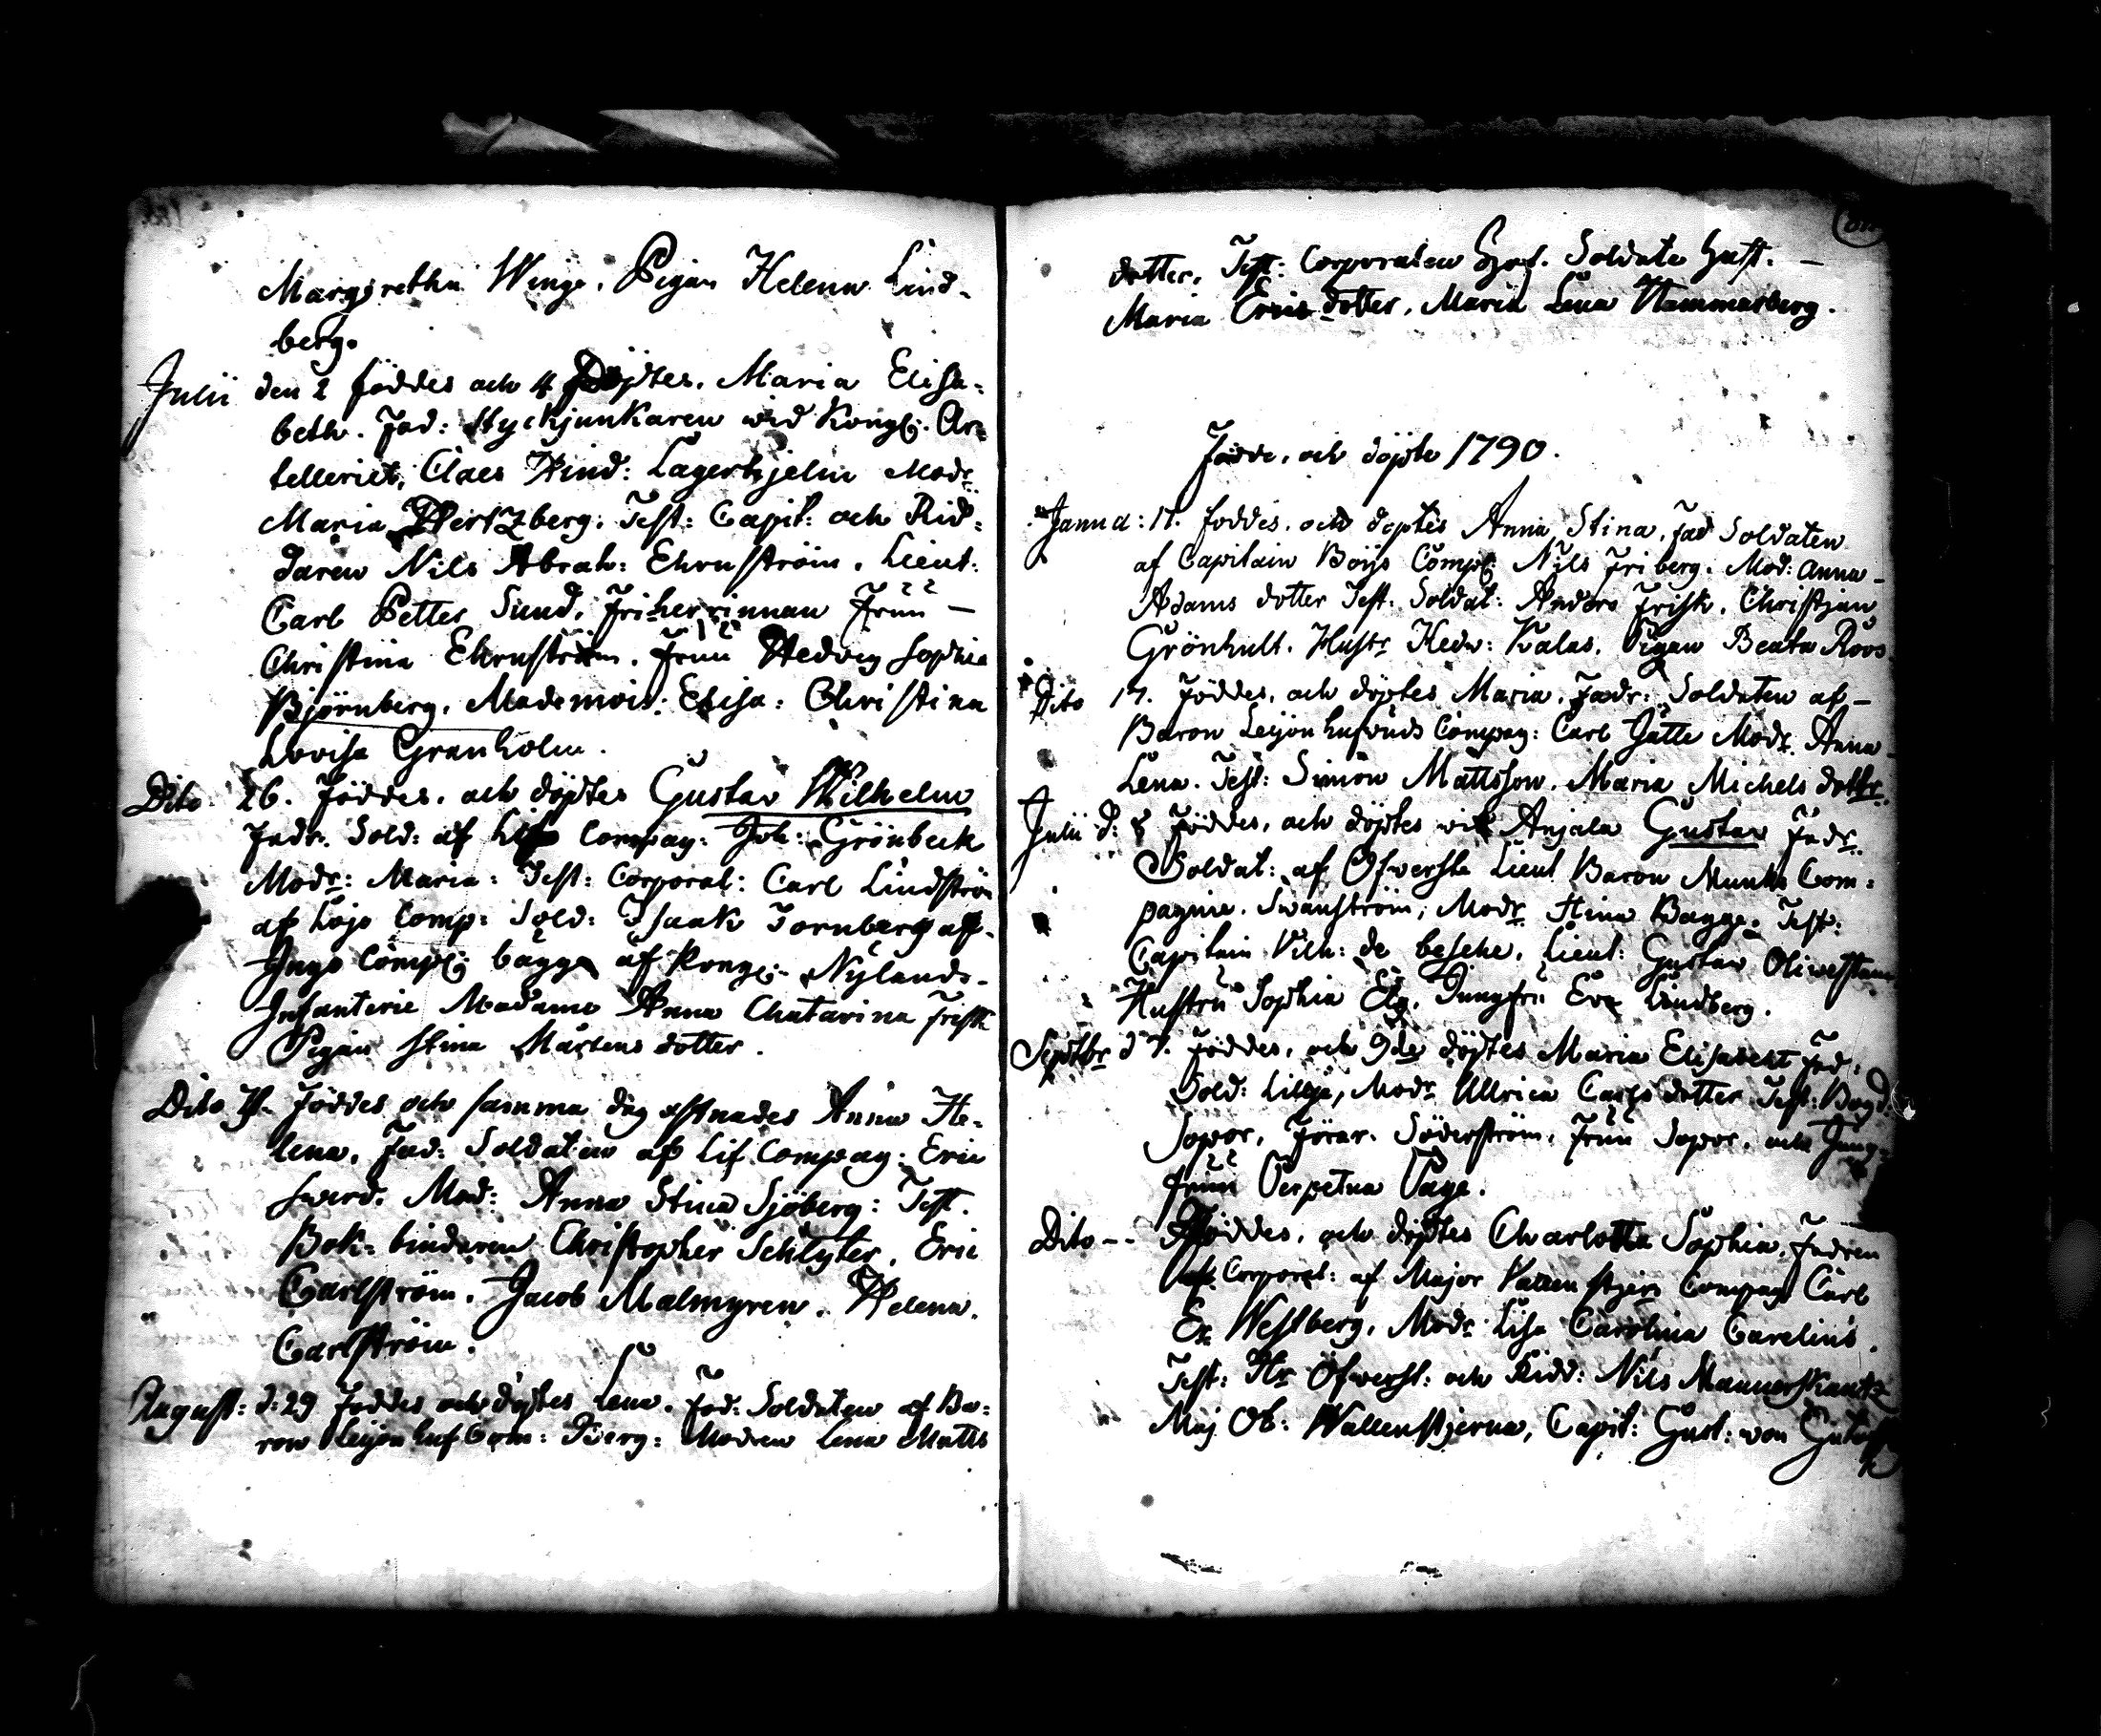 Margretha Winge. Pigan Helena Lind-
berg.
Julii den 2 föddes och 4 döptes. Maria Elisa-
beth. Fad: Styckjunkaren wid Kongl: Ar-
telleriet, Claes Hind: Lagerhjelm Modr:
Maria Hertzberg: Test: Capit: och Rid-
daren Nils Abrah: Ehrnström. Lieut:
Carl Petter Sund. Friherrinnan Fruu —
Christina Ehrnström. Fruu Hedvig Sophia
Björnberg. Mademois: Elisa: Christina
Lovisa Granholm.
Dito 26. Föddes. och döptes Gustav Wilhelm
Fadr. Sold: af Lif Compag: Joh: Grönbeck
Modr: Maria: Test: Corporal: Carl Lindström
af Lojo Comp: Sold: Isaak Tornberg af
Ingo Comp: bägge af Kongl: Nylands-
Infanterie Madame Anna Chatarina Frisk
Pigan Stina Mårtens dotter.
Dito Föddes och samma dag Anna He-
lena. Fad: Soldaten af Lif Compag: Eric
Swerd. Mod: Anna Stina Sjöberg: Test.
Bok-bindaren Christopher Schlyter. Eric
Carlström. Jacob Malmgren. Helena.
Carlström.
August: d: 29 Föddes och döptes Lena. Fad: Soldaten af Ba-
ron Leijonhuf Com: Berg: Modren Lena Matts
dotter. Test: Corporalen Soldate Hust. —
Maria Erics dotter. Maria Lena Hammarberg.
Födde. och döpte 1790.
Janua: 17. foddes. och doptes Anna Stina. Fad Soldaten
af Capitain Boijs Comp: Nils Friberg. Mod: Anna-
Adams dotter Test. Soldat: Anders Frisk. Christjan
Grönhult. Hustr Hedw: Kalas. Pigan Beata Roos
Dito 17. Föddes. och döptes Maria. Fadr: Soldaten af —
Baron Leijonhufvuds Compag: Carl Jatte Modr. Anna-
Lena. Test: Simon Mattsson. Maria Michels dottr.
Julii d: 8 Föddes. och döptes wid Anjala Gustav Fadr.
Soldat: af Öfwerste Lieut Baron Munks Com-
pagnie. Swanström; Modr Stina Bagge. Test:
Capitain Vilh: de besche. Lieut: Gustav
Hustru Sophia Elg. Jungfru Eva Lindberg.
Septbr d 7. Föddes. och 9de döptes Maria Elisabeth Fad.
Sold: Lilja, Modr Ullrica Carls dotter Test:
Förar. Söderström. Fruu och Jung-
fruu Perpetua Page.
Dito -- Föddes. och döptes Charlotta Sophia. Fadren
Corporal: af Major Wallenstjern Compag Carl
Er Westberg. Modr Lisa Carolina Carelius.
Test: Hr Öfwerst: och Ridd: Nils Mannerskantz
Maj Ob: Wallenstjerna, Capit: Gust: von